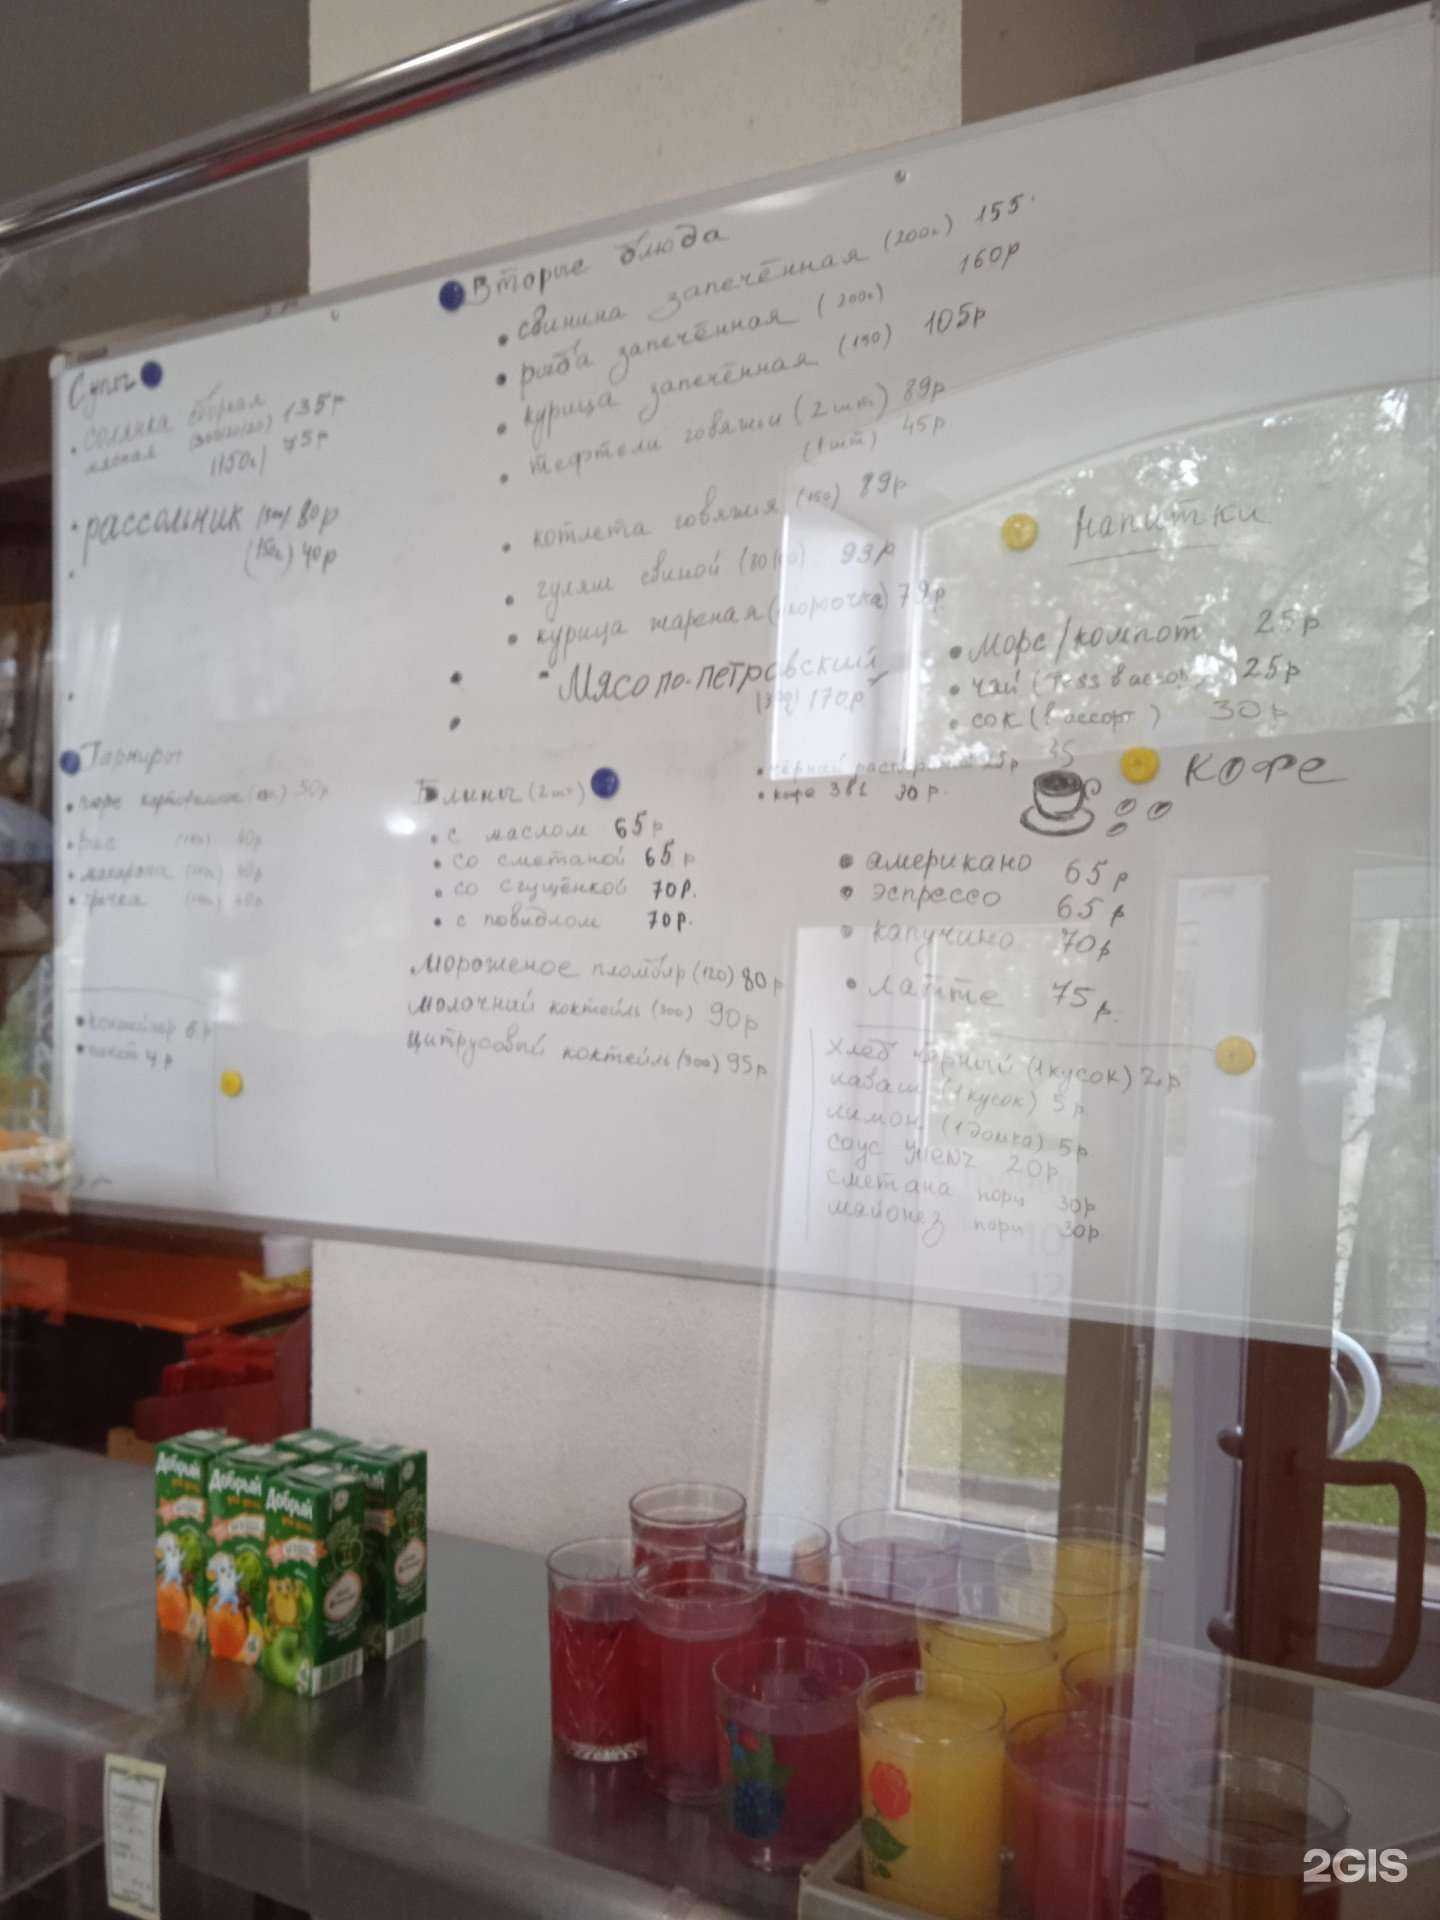 Вторые блюда
• свинина запечённая (200г) 155.
• рыба запечённая (200г) 160р
• курица запечённая (150) 105р
• тефтели говяжьи (2шт) 89р
(1шт) 45р
• котлета говяжья (150) 89р
• гуляш свиной 93р
• курица жареная 79р
- Мясо по-петровский
170р
Супы
• солянка сборная
мясная 135р
(150г) 75р
• рассольник (300) 80р
(150г) 40р
Гарниры
• пюре картофельное 50р
• рис 40р
• макароны 40р
• гречка 40р
• контейнер 6р
• пакет 4р
Блины (2шт)
• с маслом 65р
• со сметаной 65р
• со сгущёнкой 70р.
• с повидлом 70р.
мороженое пломбир (120) 80р
молочный коктейль (300) 90р
цитрусовый коктейль (300) 95р
Напитки
• морс/компот 25р
• чай (Tess в ассорт) 25р
• сок (в ассорт) 30р
35
• кофе 3в1 30р.
кофе
• американо 65р
• эспрессо 65р
• капучино 70р
• латте 75р.
хлеб чёрный (1кусок) 2р
лаваш (1кусок) 5р
лимон (1долька) 5р
соус 20р
сметана порц 30р
майонез порц 30р
Добрый
Добрый
Добрый
Добрый
2GIS